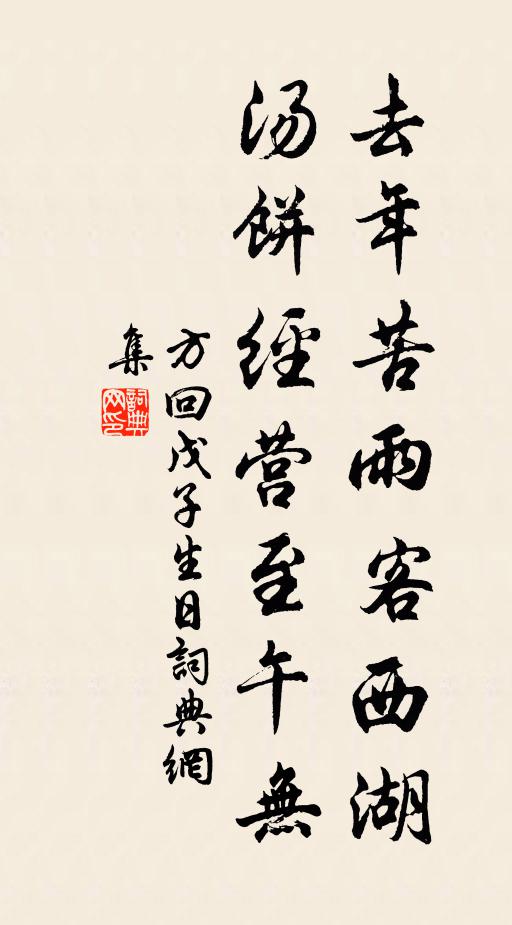 去年苦雨客西湖
汤餅經营至午無
方回戊子生日詞典網
集
詞典
网印